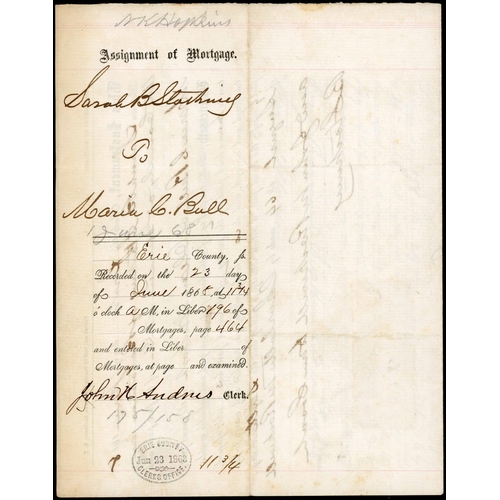 N K Hopkins
Assignment of Mortgage.
Sarah B
To
Maria C. Bull
Erie County, ss.
Recorded on the 23 day
of June 1868, at 11 3/4
o'clock A M, in Liber 196 of
Mortgages, page 464
and entered in Liber of
Mortgages, at page and examined.
John H Andrus Clerk.
175/158
ERIE COUNTY
Jun 23 1868
CLERKS OFFICE.
11 3/4